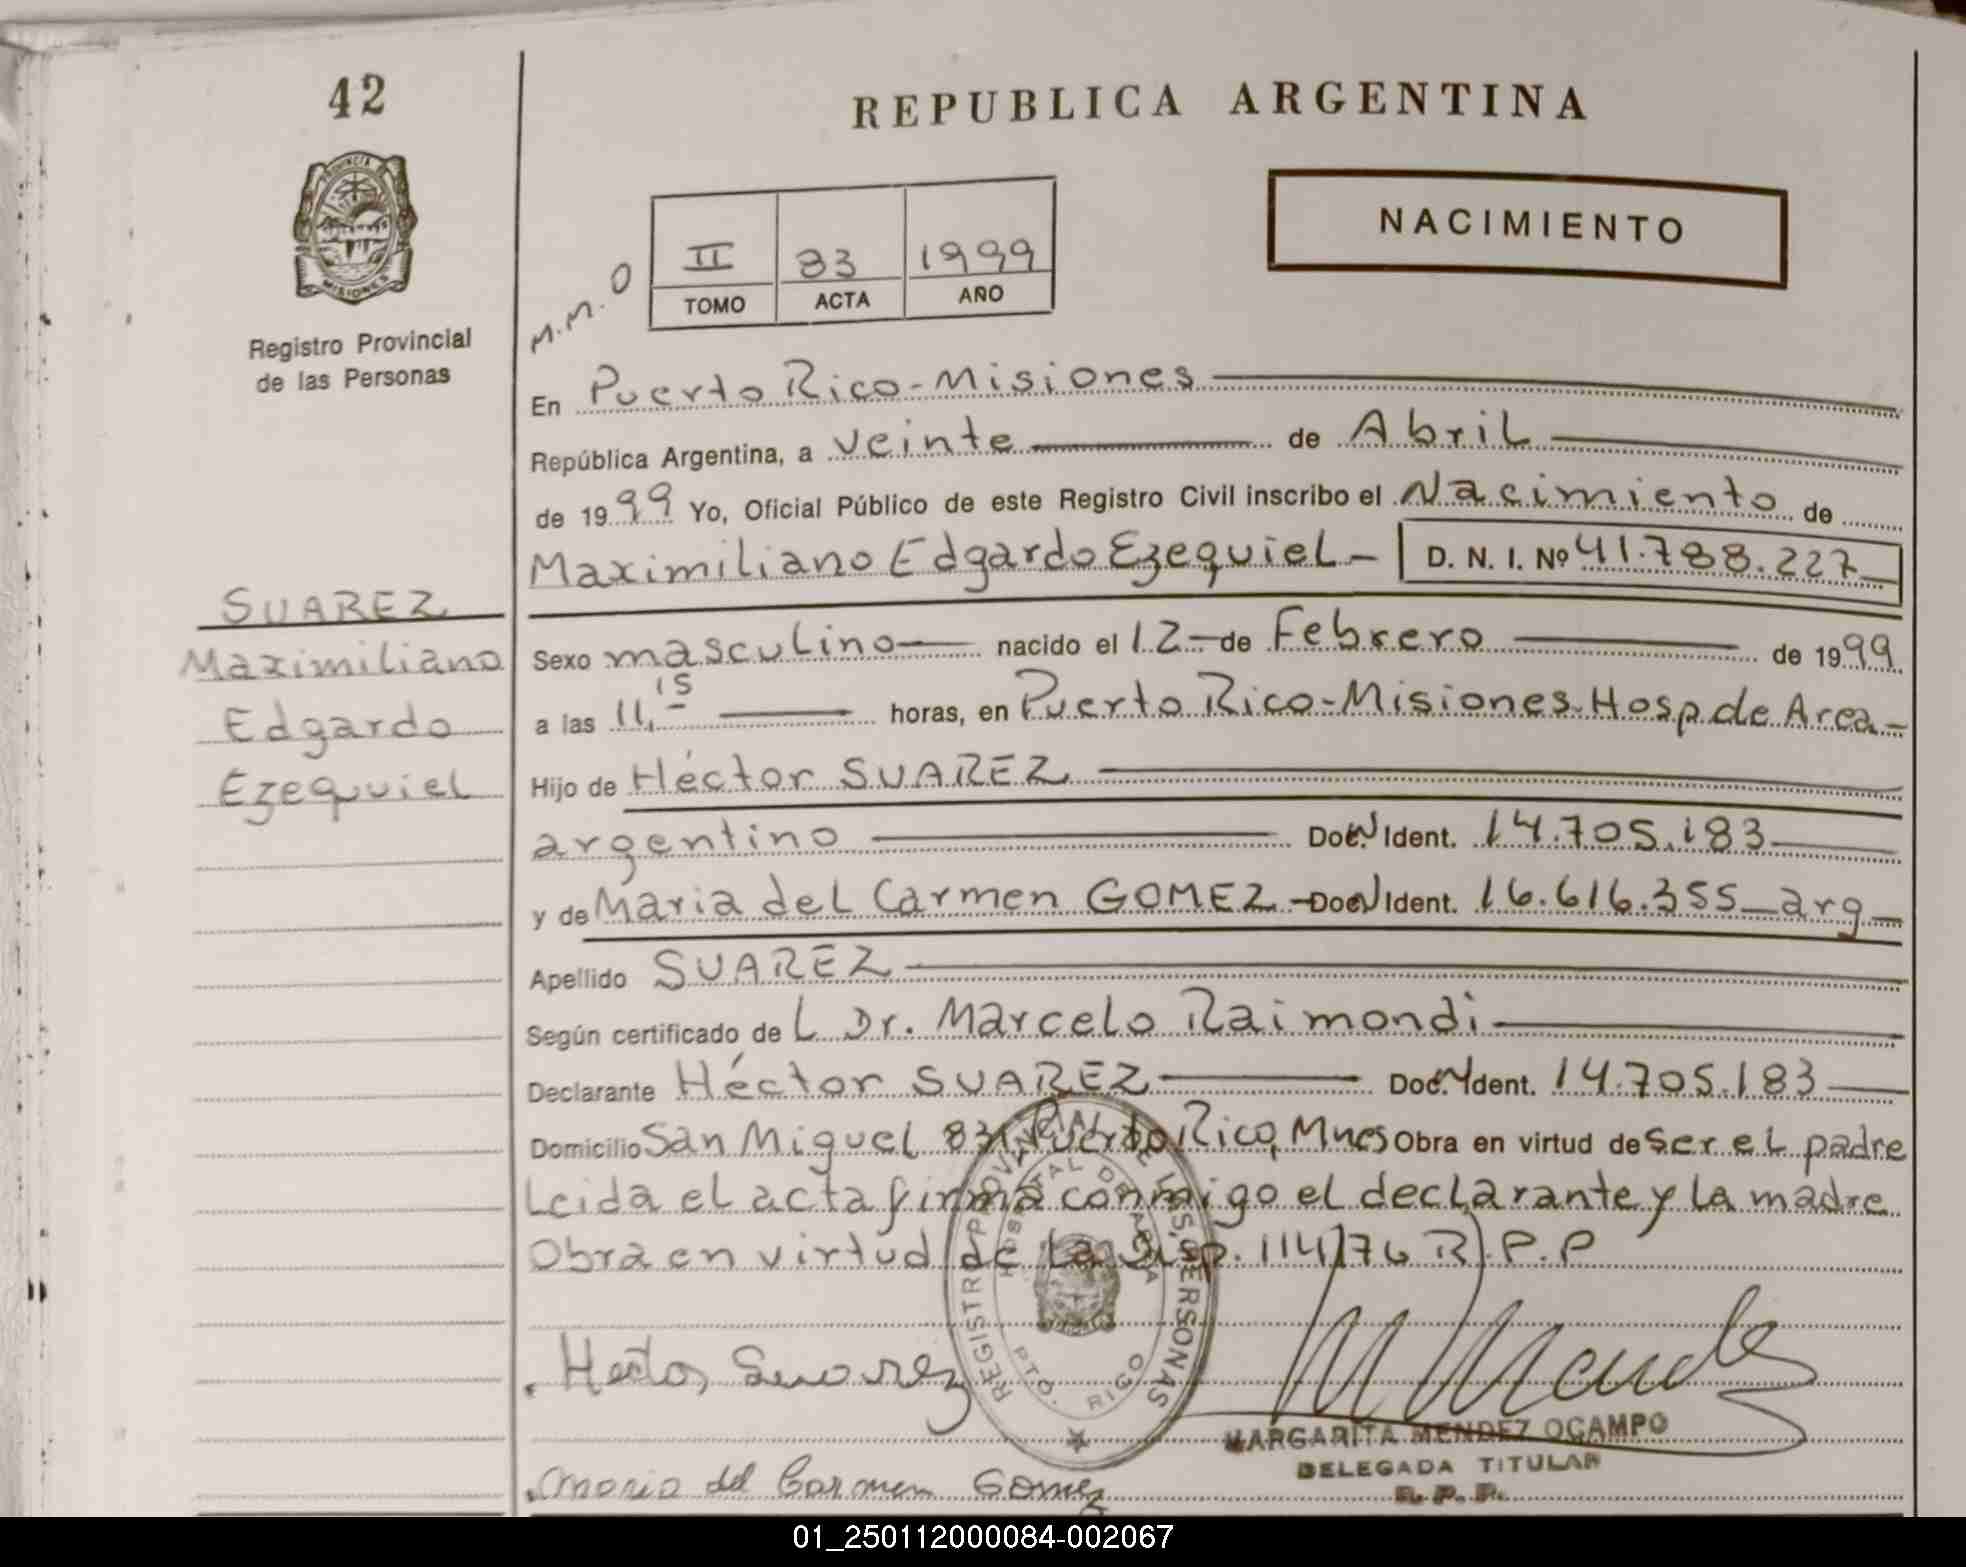 42
REPUBLICA ARGENTINA
NACIMIENTO
PROVINCIA DE
MISIONES
Registro Provincial
de las Personas
M.M.O
II 83 1999
TOMO ACTA AÑO
En Puerto Rico-Misiones
República Argentina, a veinte de Abril
de 1999 Yo, Oficial Público de este Registro Civil inscribo el Nacimiento de
Maximiliano Edgardo Ezequiel- D. N. I. Nº 41.788.227
SUAREZ
Maximiliano
Edgardo
Ezequiel
Sexo masculino nacido el 12 de Febrero de 1999
a las 11,15 horas, en Puerto Rico-Misiones-Hosp.de Area-
Hijo de Héctor SUAREZ
argentino Doc. Ident. 14.705.183
y de Maria del Carmen GOMEZ - Doc. Ident. 16.616.355 arg
Apellido SUAREZ
Según certificado de L Dr. Marcelo Raimondi
Declarante Héctor SUAREZ Doc. Ident. 14.705.183
Domicilio San Miguel 831 Puerto Rico, Mnes Obra en virtud de ser el padre
Leida el acta firma conmigo el declarante y la madre
Obra en virtud de La Disp. 114/76 R.P.P
REGISTRO PROVINCIAL DE LAS PERSONAS
HOSPITAL DE AREA
PTO. RICO
Hector Suarez
MARGARITA MENDEZ OCAMPO
DELEGADA TITULAR
R. P. P.
Maria del Carmen Gomez
01_250112000084-002067